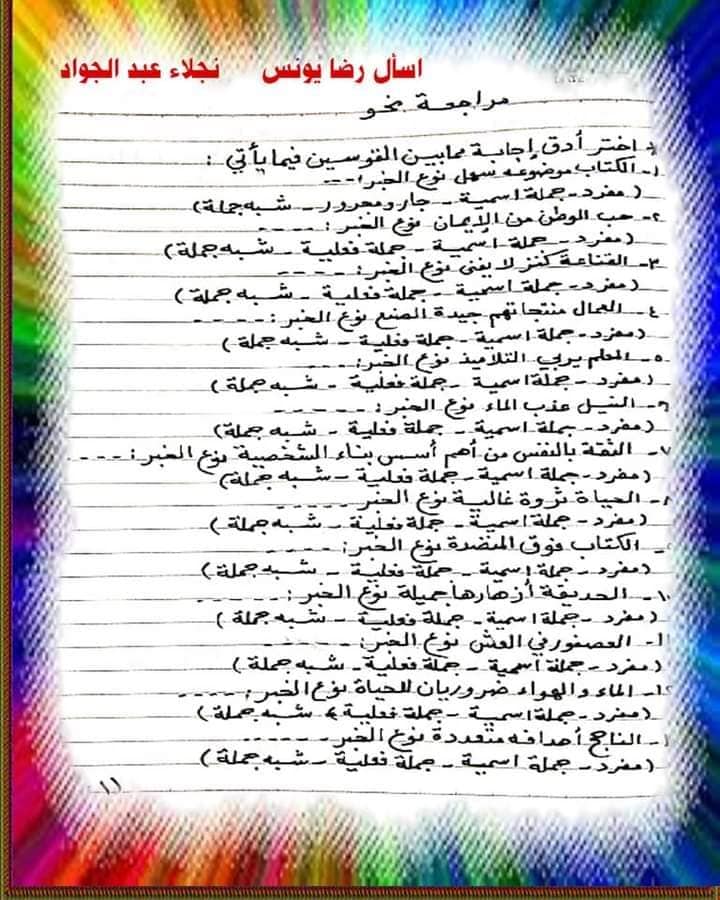 اسأل رضا يونس نجلاء عبد الجواد
مراجعة نحو
اختر أدق إجابة مما بين القوسين فيما يأتي :
١- الكتاب موضوعه سهل نوع الخبر: ----
( مفرد - جملة اسمية - جار ومجرور - شبه جملة )
٢- حب الوطن من الإيمان نوع الخبر : -----
( مفرد - جملة إسمية - جملة فعلية - شبه جملة )
٣- القناعة كنز لا يفنى نوع الخبر: ----
( مفرد - جملة اسمية - جملة فعلية - شبه جملة )
٤- العمال منتجاتهم جيدة الصنع نوع الخبر : -----
( مفرد - جملة اسمية - جملة فعلية - شبه جملة )
٥- المعلم يربي التلاميذ نوع الخبر: ----
( مفرد - جملة اسمية - جملة فعلية - شبه جملة )
- النيل عذب الماء نوع الخبر : -----
( مفرد - جملة اسمية - جملة فعلية - شبه جملة )
٧- الثقة بالنفس من أهم أسس بناء الشخصية نوع الخبر : ----
( مفرد - جملة اسمية - جملة فعلية - شبه جملة )
- الحياة ثروة غالية نوع الخبر -----
( مفرد - جملة اسمية - جملة فعلية - شبه جملة )
- الكتاب فوق المنضدة نوع الخبر : ----
( مفرد - جملة إسمية - جملة فعلية - شبه جملة )
١٠- الحديقة أزهارها جميلة نوع الخبر : -----
( مفرد - جملة اسمية - جملة فعلية - شبه جملة )
١- العصفور في العش نوع الخبر : -----
( مفرد - جملة اسمية - جملة فعلية - شبه جملة )
١٢- الماء والهواء ضروريان للحياة نوع الخبر : ----
( مفرد - جملة اسمية - جملة فعلية - شبه جملة )
١- الناجح أهدافه متعددة نوع الخبر - -----
( مفرد - جملة اسمية - جملة فعلية - شبه جملة )
١١